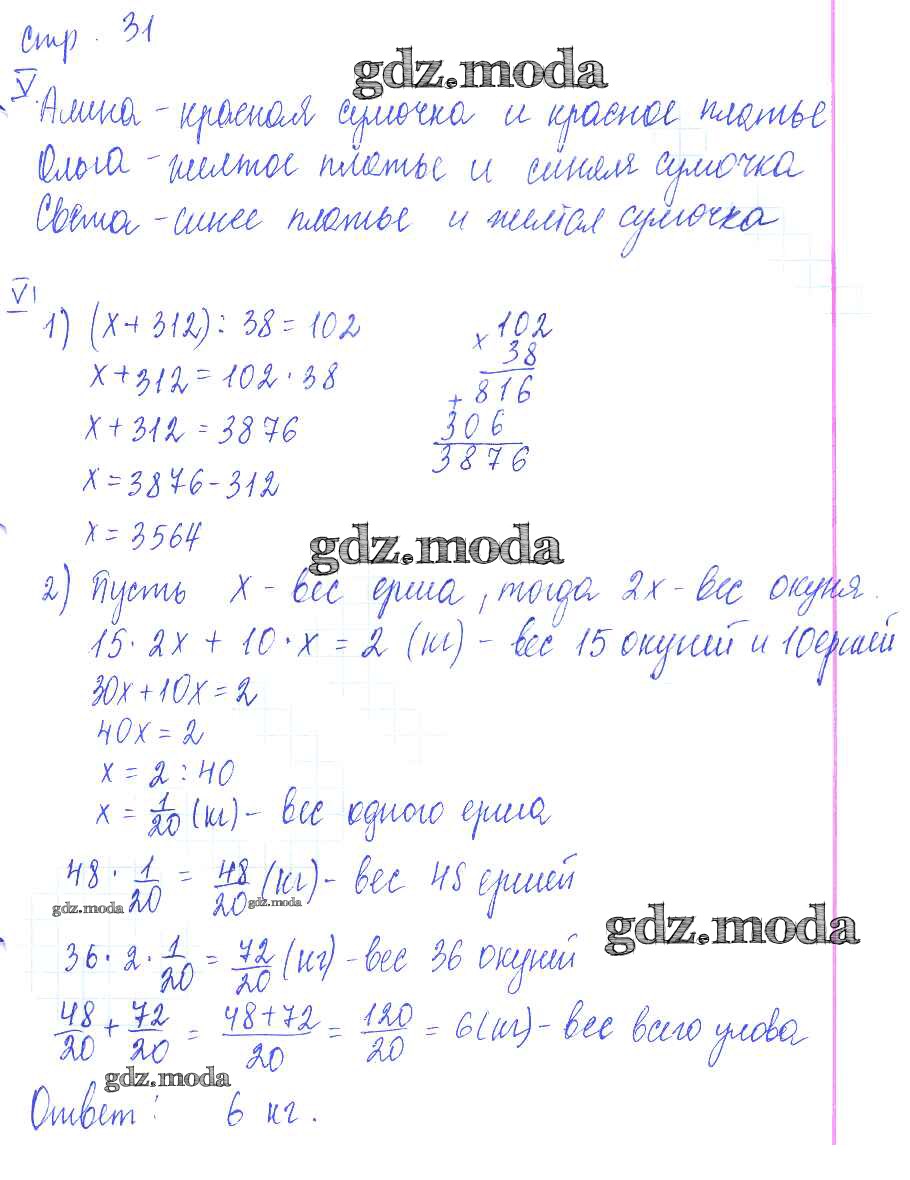 стр. 31
gdz.moda
V.
Алина - красная сумочка и красное платье
Ольга - желтое платье и синяя сумочка
Света - синее платье и желтая сумочка
VI
1) (x + 312) : 38 = 102
x + 312 = 102 · 38
x + 312 = 3876
x = 3876 - 312
x = 3564
× 102
38
+ 816
306
3876
gdz.moda
2) Пусть x - вес ерша, тогда 2x - вес окуня.
15 · 2x + 10 · x = 2 (кг) - вес 15 окуней и 10 ершей
30x + 10x = 2
40x = 2
x = 2 : 40
x = 1/20 (кг) - вес одного ерша
48 · 1/20 = 48/20 (кг) - вес 48 ершей
gdz.moda gdz.moda
gdz.moda
36 · 2 · 1/20 = 72/20 (кг) - вес 36 окуней
48/20 + 72/20 = 48+72/20 = 120/20 = 6 (кг) - вес всего улова
gdz.moda
Ответ: 6 кг.